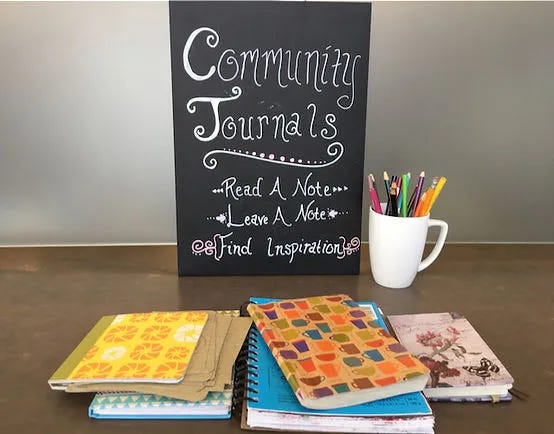 Community
Journals
Read A Note
Leave A Note
{Find Inspiration}